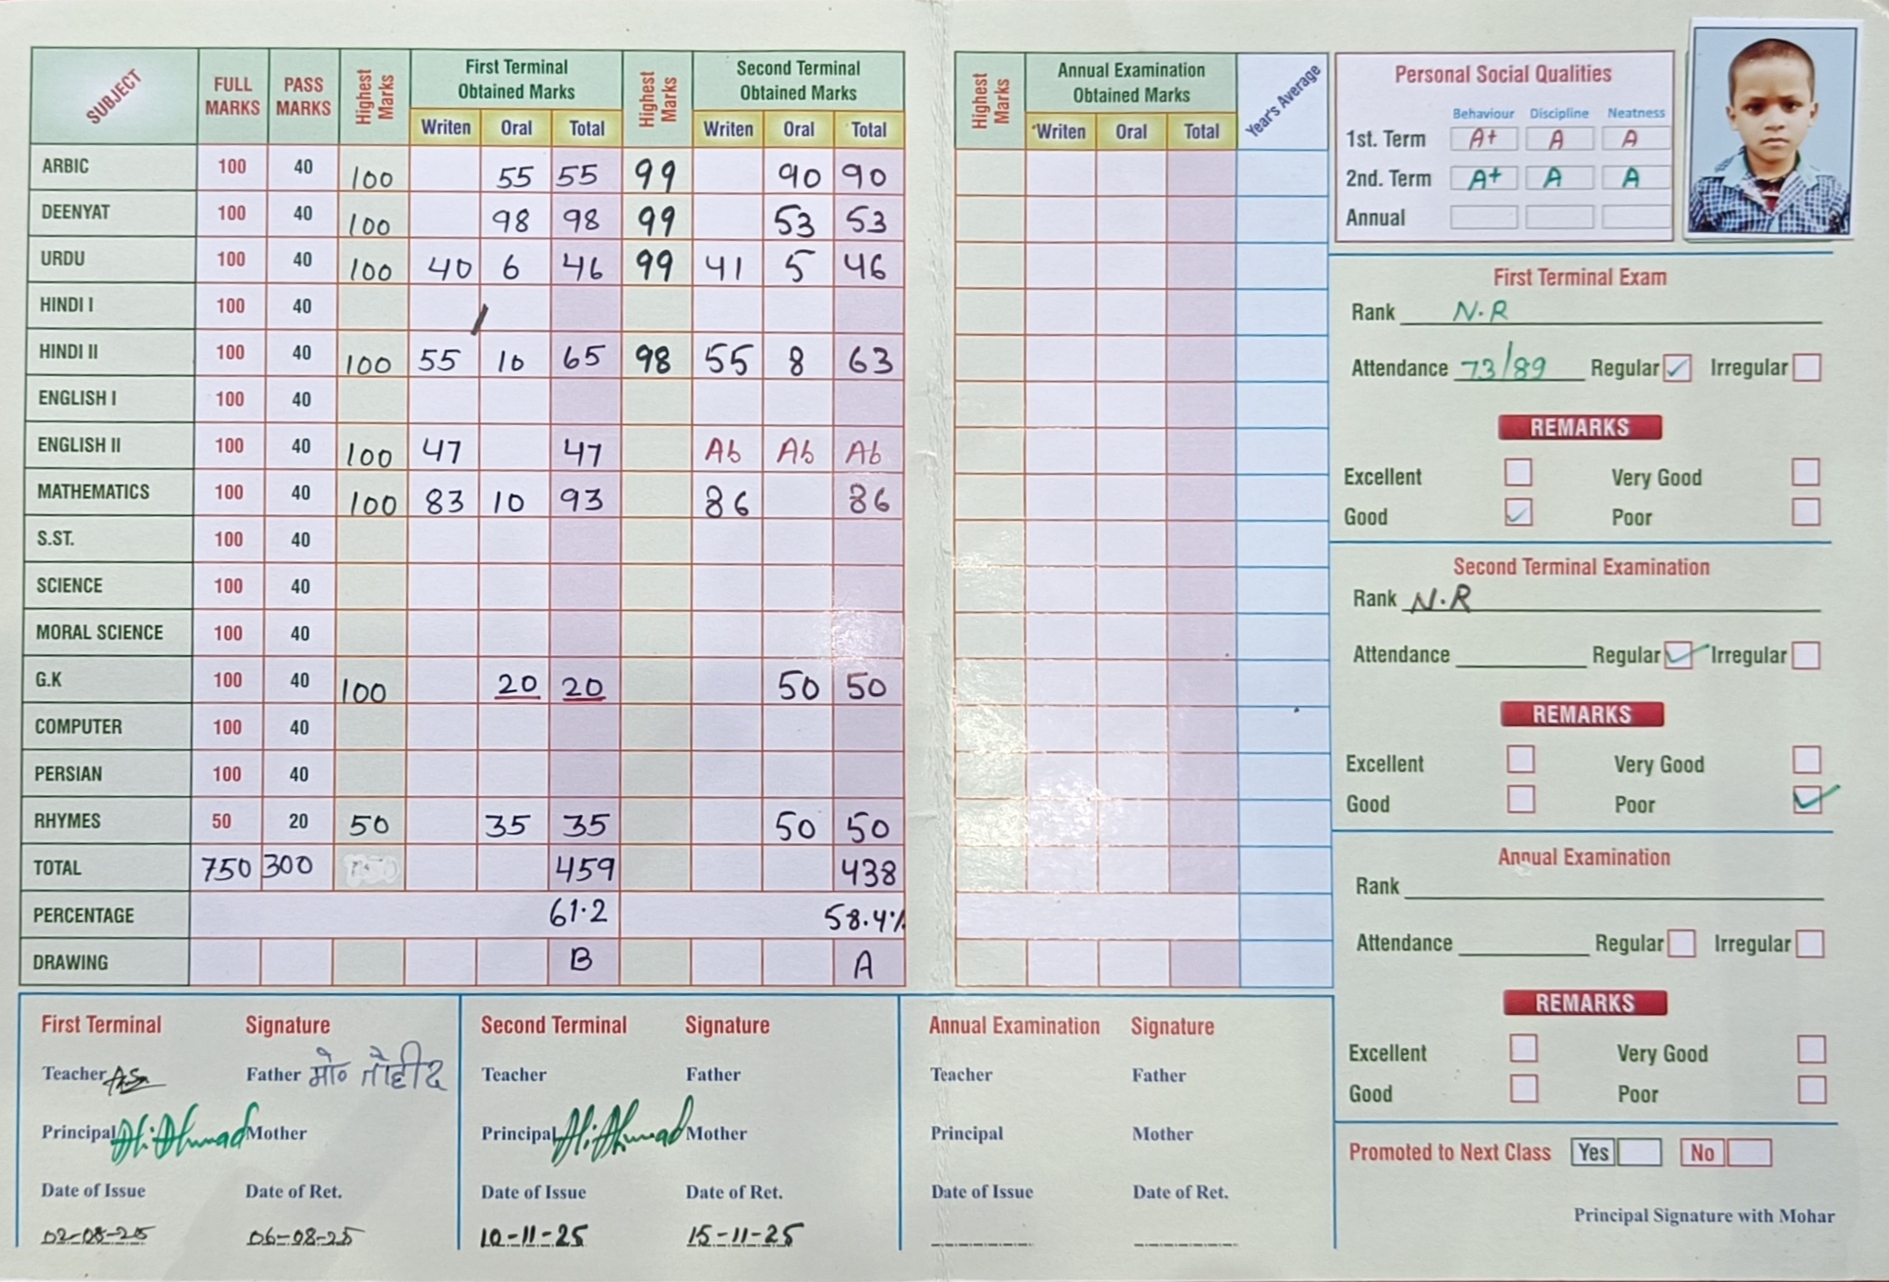 SUBJECT FULL MARKS PASS MARKS Highest Marks First Terminal Obtained Marks Highest Marks Second Terminal Obtained Marks
Writen Oral Total Writen Oral Total
ARBIC 100 40 100 55 55 99 90 90
DEENYAT 100 40 100 98 98 99 53 53
URDU 100 40 100 40 6 46 99 41 5 46
HINDI I 100 40
HINDI II 100 40 100 55 10 65 98 55 8 63
ENGLISH I 100 40
ENGLISH II 100 40 100 47 47 Ab Ab Ab
MATHEMATICS 100 40 100 83 10 93 86 86
S.ST. 100 40
SCIENCE 100 40
MORAL SCIENCE 100 40
G.K 100 40 100 20 20 50 50
COMPUTER 100 40
PERSIAN 100 40
RHYMES 50 20 50 35 35 50 50
TOTAL 750 300 459 438
PERCENTAGE 61.2 58.4%
DRAWING B A
First Terminal Signature
Teacher Father मो० तौहीद
Principal Ali Ahmad Mother
Date of Issue Date of Ret.
02-08-25 06-08-25
Second Terminal Signature
Teacher Father
Principal Ali Ahmad Mother
Date of Issue Date of Ret.
10-11-25 15-11-25
Highest Marks Annual Examination Obtained Marks Year's Average
Writen Oral Total
Annual Examination Signature
Teacher Father
Principal Mother
Date of Issue Date of Ret.
Personal Social Qualities
Behaviour Discipline Neatness
1st. Term A+ A A
2nd. Term A+ A A
Annual
First Terminal Exam
Rank N.R
Attendance 73/89 Regular ✓ Irregular
REMARKS
Excellent Very Good
Good ✓ Poor
Second Terminal Examination
Rank N.R
Attendance Regular ✓ Irregular
REMARKS
Excellent Very Good
Good Poor ✓
Annual Examination
Rank
Attendance Regular Irregular
REMARKS
Excellent Very Good
Good Poor
Promoted to Next Class Yes No
Principal Signature with Mohar